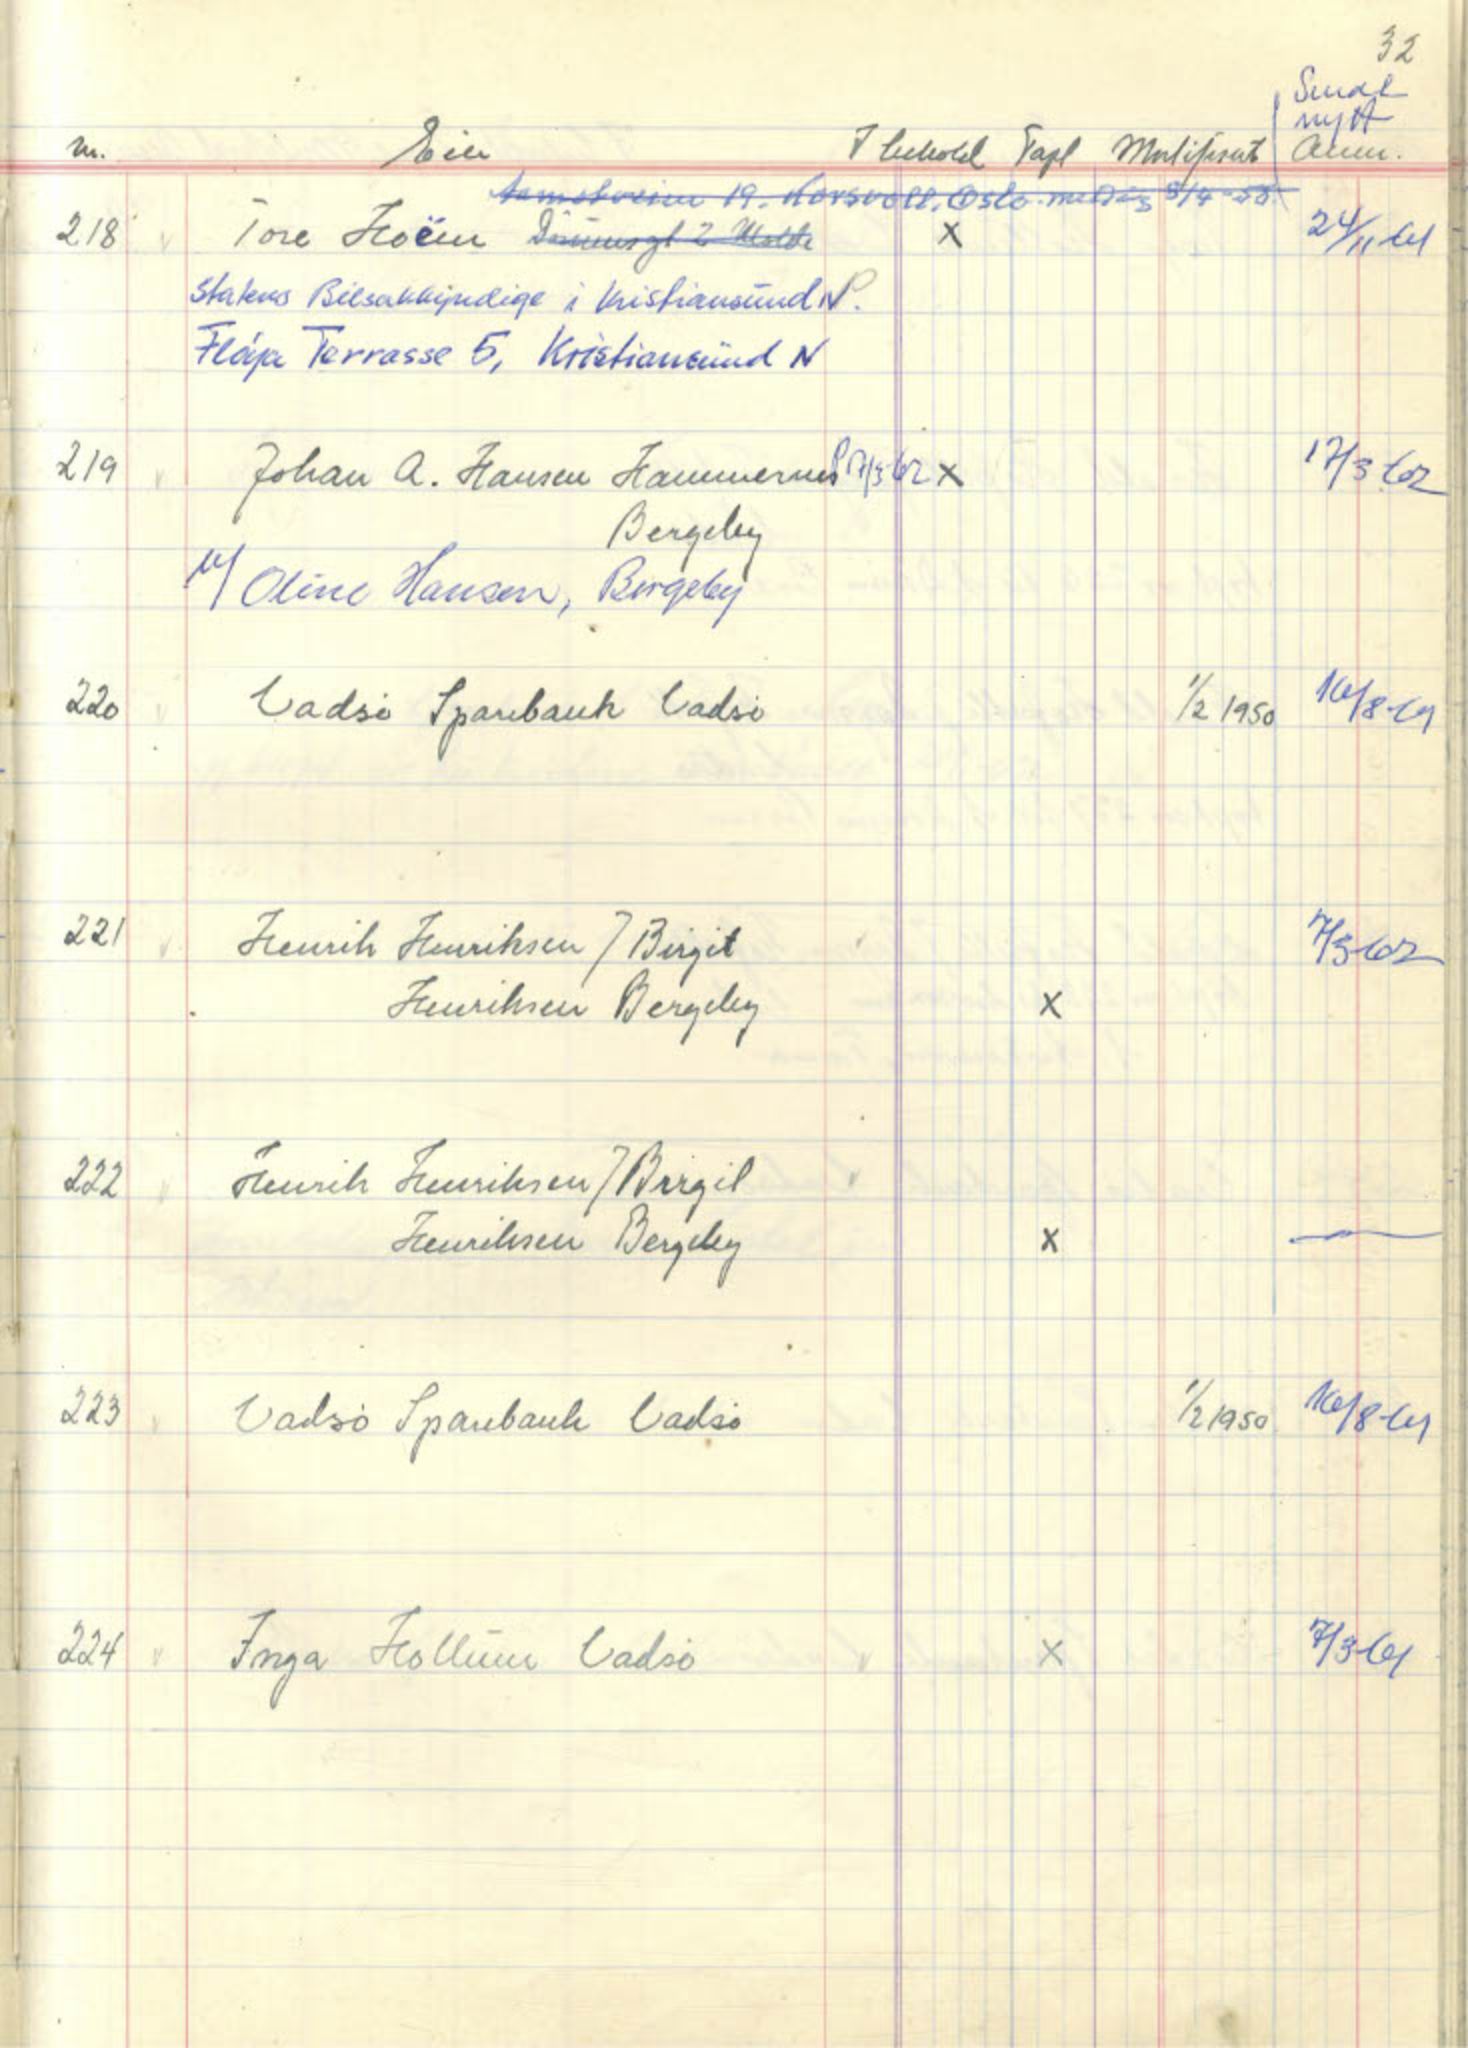 32
Sendt
nytt
nr. Eier I behold Tapt Mortifisert Anm.
19. Korsvoll, Oslo. 8/4-58
218 Tore Hoëm Molde x 24/11-61
Statens Bilsakkyndige i Kristiansund N.
Fløya Terrasse 5, Kristiansund N
219 Johan A. Hansen Hammernes 17/3-62 x 17/3-62
Bergeby
v/ Oline Hansen, Bergeby
220 Vadsø Sparebank Vadsø 1/2 1950 16/8-61
221 Henrik Henriksen / Birgit 7/3-62
Henriksen Bergeby x
222 Henrik Henriksen / Birgit
Henriksen Bergeby x —
223 Vadsø Sparebank Vadsø 1/2 1950 16/8-61
224 Inga Hollum Vadsø x 7/3-61